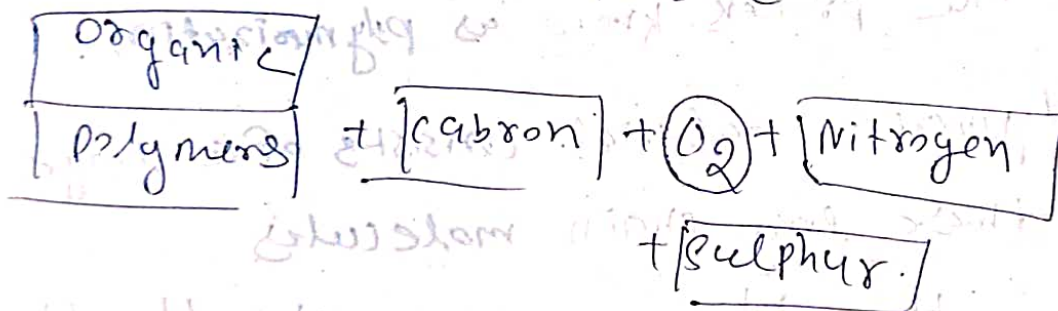 Organic
Polymers + Cabron + O2 + Nitrogen
+ Sulphur.